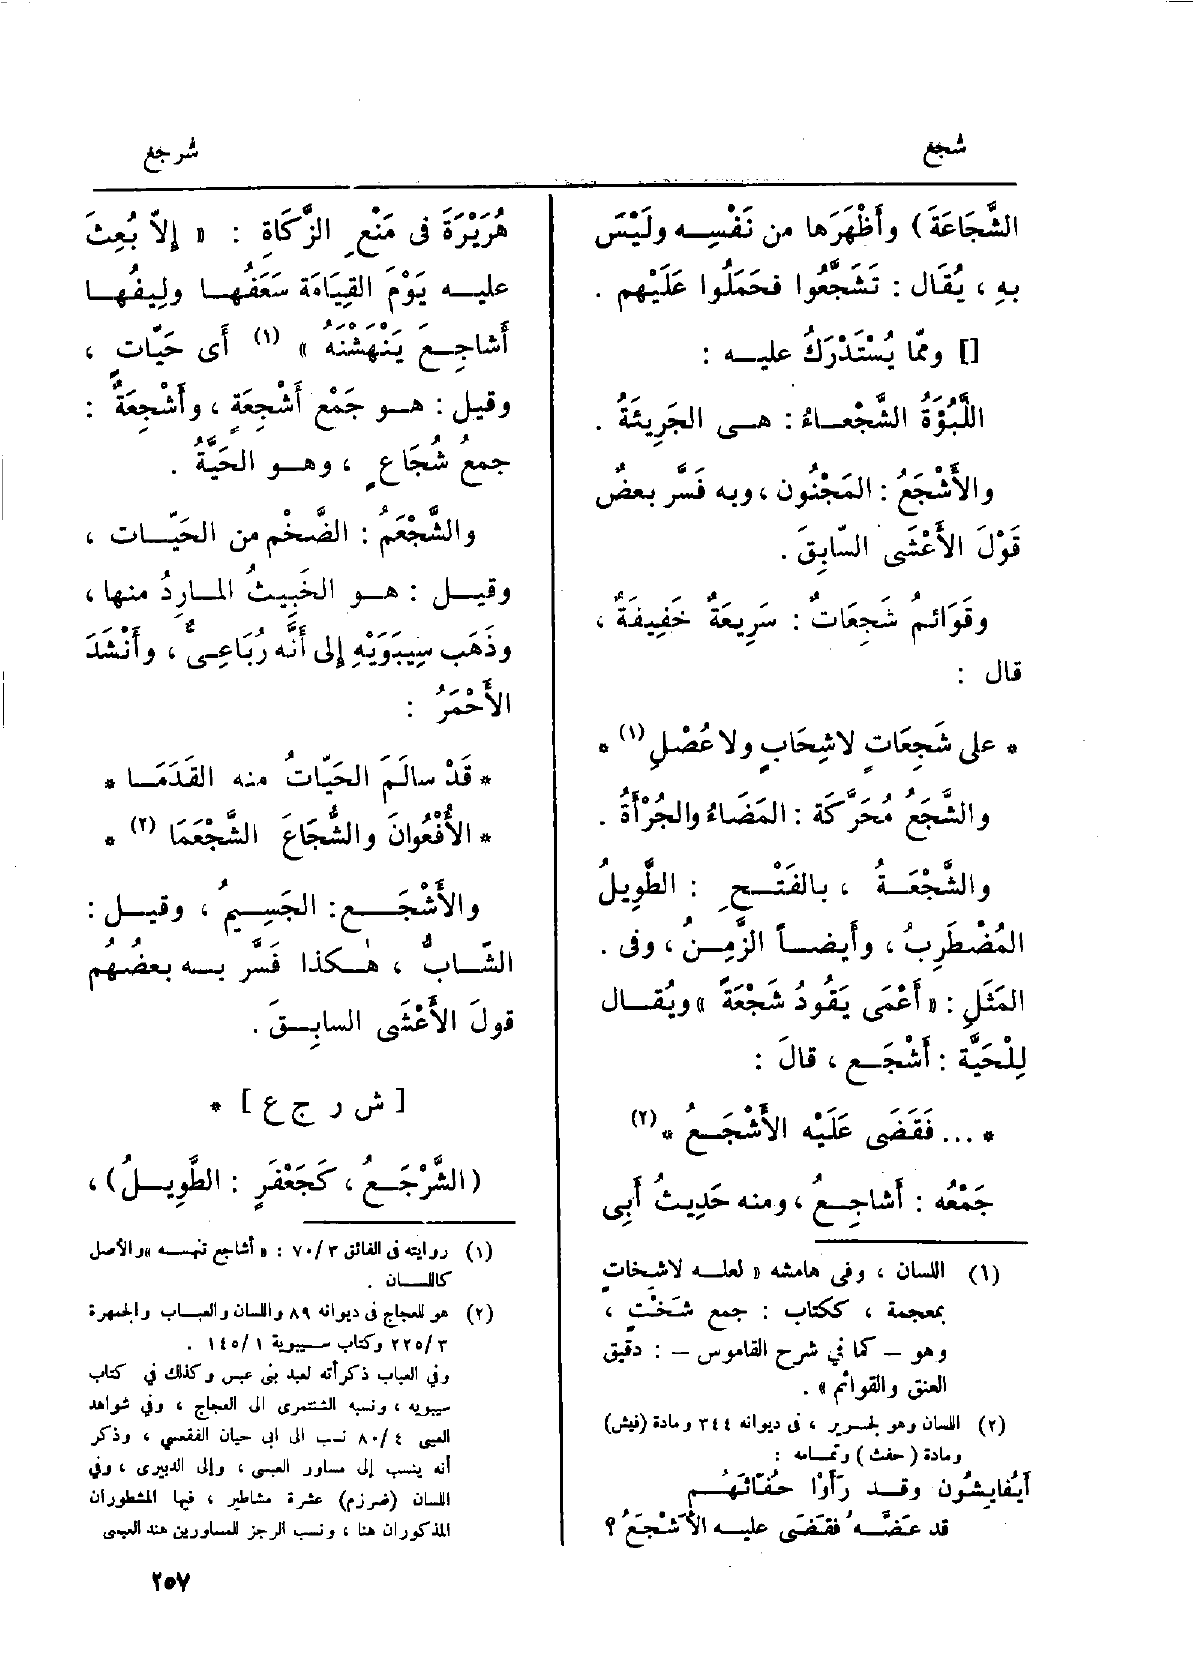 شجع
شرجع
الشَّجَاعَةَ) وأَظْهَرَها من نَفْسِه ولَيْسَ
بهِ ، يُقَال : تَشَجَّعُوا فحَمَلُوا عَلَيْهِم .
[] وممّا يُسْتَدْرَكُ عليه :
اللَّبُؤَةُ الشَّجْعاءُ : هى الجَرِيئَةُ .
والأَشْجَعُ : المَجْنُون ، وبه فَسَّر بعضٌ
قَوْلَ الأَعْشَى السّابِقَ .
وقَوَائمُ شَجِعَاتٌ : سَرِيعَةٌ خَفِيفَةٌ ،
قال :
* على شَجِعَاتٍ لاشِحَابٍ ولا عُصْلِ (١) *
والشَّجَعُ مُحَرَّكة : المَضَاءُ والجُرْأَةُ .
والشَّجْعَةُ ، بالفَتْحِ : الطَّوِيلُ
المُضْطَرِبُ ، وأَيضاً الزَّمِنُ ، وفى .
المَثَلِ : « أَعْمَى يَقُودُ شَجْعَةً » ويُقال
لِلْحَيَّة : أَشْجَع ، قالَ :
* ... فَقَضَى عَلَيْه الأَشْجَعُ * (٢)
جَمْعُه : أَشاجِعُ ، ومنه حَدِيثُ أَبِى
(١) اللسان ، وفى هامشه « لعله لاشِخَاتٍ
بمعجمة ، ككتاب : جمع شَخْتٍ ،
وهو – كما في شرح القاموس – : دقيق
العنق والقوائم » .
(٢) اللسان وهو لجرير ، فى ديوانه ٣٤٤ ومادة (فيش)
ومادة ( حفث ) وتمامه :
أَيُفايشُون وقد رَأَوْا حُفّاثَهُم
قد عَضَّه فقَضَى عليه الأَشْجَعُ ؟
هُرَيْرَةَ فى مَنْعِ الزَّكَاةِ : « إِلاّ بُعِثَ
عليه يَوْمَ القِيَامَة سَعَفُها ولِيفُها
أَشاجِعَ يَنْهَشْنَهُ » (١) أَى حَيّات ،
وقيل : هو جَمْع أَشْجِعَةٍ ، وأَشْجِعَةٌ :
جمعُ شُجَاعٍ ، وهو الحَيَّةُ .
والشَّجْعَمُ : الضَّخْم من الحَيّات ،
وقيل : هو الخَبِيثُ المارِدُ منها ،
وذَهَب سِيبَوَيْهِ إِلى أَنَّه رُبَاعِىٌّ ، وأَنْشَدَ
الأَحْمَرُ :
* قَدْ سالَمَ الحَيّاتُ منه القَدَمَا *
* الأُفْعُوانَ والشُّجَاعَ الشَّجْعَمَا (٢) *
والأَشْجَع : الجَسِيمُ ، وقيل :
الشّابُّ ، هٰكذا فَسَّر به بعضُهُم
قولَ الأَعْشَى السابِقَ .
[ ش ر ج ع ] *
(الشَّرْجَعُ ، كَجَعْفَرٍ : الطَّوِيلُ) ،
(١) روايته فى الفائق ٣/ ٧٠ : « أشاجع تنهسه » والأصل
كاللسان .
(٢) هو للعجاج فى ديوانه ٨٩ واللسان والعباب والجمهرة
٣/ ٢٢٥ وكتاب سيبوية ١/ ١٤٥ .
وفي العباب ذكرأنه لعبد بنى عبس وكذلك في كتاب
سيبويه ، ونسبه الشنتمرى الى العجاج ، وفي شواهد
العينى ٤/ ٨٠ نسب الى ابى حيان الفقعسي ، وذكر
أنه ينسب إلى مساور العبسى ، وإلى الدبيرى ، وفي
اللسان (ضرزم) عشرة مشاطير ، فيها المشطوران
المذكوران هنا ، ونسب الرجز للمساوربن هند العبسى
٢٥٧